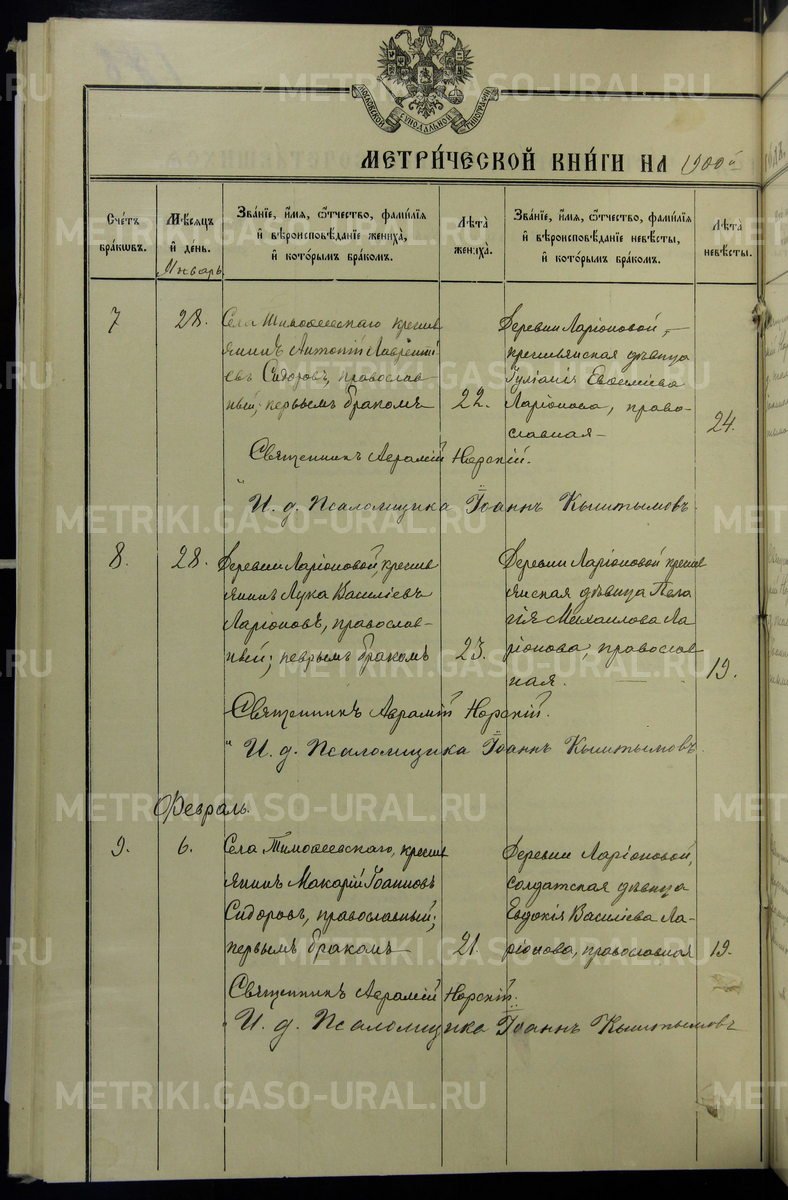 МОСКОВСКОЙ СѴНОДАЛЬНОЙ ТИПОГРАФІИ
МЕТРИ́ЧЕСКОЙ КНИ́ГИ НА 1900й
Сче́тъ бра́кωвъ.
Мѣ́сяцъ и҆ день.
Зва́нїе, и҆́мя, ѻ҆́тчество, фами́лїя и҆ вѣроисповѣ́данїе жениха̀, и҆ кото́рымъ бра́комъ.
Лѣ́та жениха̀.
Зва́нїе, и҆́мя, ѻ҆́тчество, фами́лїя и҆ вѣроисповѣ́данїе невѣ́сты, и҆ кото́рымъ бра́комъ.
Лѣ́та невѣ́сты.
Январь.
7
28.
Села Тимоѳеевскаго крестья
янинъ Антоній Лаврентi
евъ Сидоровъ, православ-
ный; первымъ бракомъ
22.
Деревни Ларіоновой,
крестьянская дѣвица
Іуліанія Евсиліева
Ларіонова, право-
славная
24.
Священникъ Аврамій Норскій.
" И. д. Псаломщика Іоаннъ Кыштымовъ.
8.
28.
Деревни Ларіоновой, крестья
янинъ Лука Василіевъ
Ларіоновъ, православ-
ный; первымъ бракомъ
23.
Деревни Ларіоновой крестья
янская дѣвица Пела
гія Михаилова Ла
ріонова, православ
ная.
19.
Священникъ Аврамій Норскій.
" И. д. Псаломщика Іоаннъ Кыштымовъ.
Февраль.
9.
6.
Села Тимоѳеевскаго, крестья
янинъ Макарій Іоанновъ
Сидоровъ, православный;
первымъ бракомъ
21.
Деревни Ларіоновой,
солдатская дѣвица
Евдокія Василіева Ла-
ріонова, православная
19.
Священникъ Аврамій Норскій.
" И. д. Псаломщика Іоаннъ Кыштымовъ
METRIKI.GASO-URAL.RU